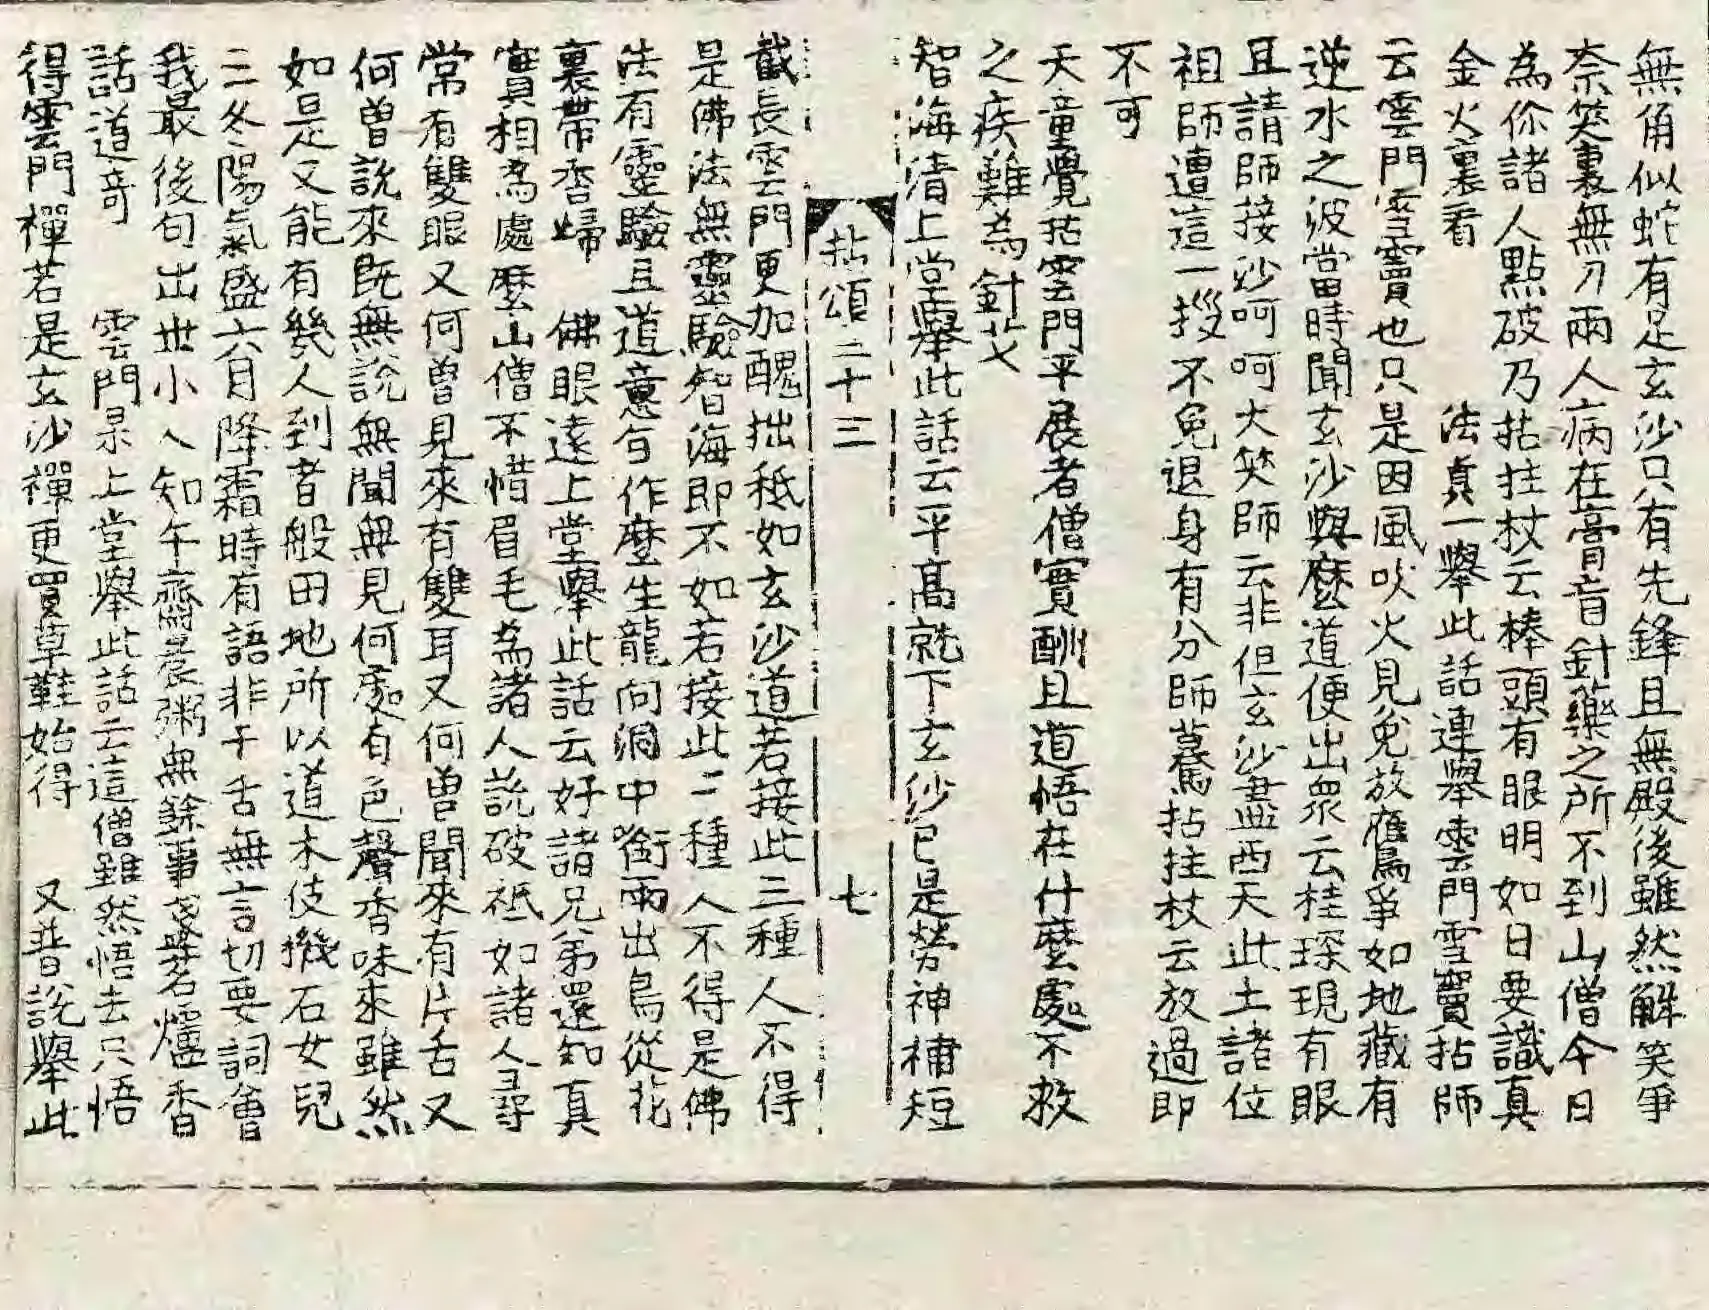 無角似蛇有足玄沙只有先鋒且無殿後雖然解笑爭
奈笑裏無刀兩人病在膏肓針藥之所不到山僧今日
為你諸人點破乃拈拄杖云棒頭有眼明如日要識真
金火裏看 法真一舉此話連舉雲門雪竇拈師
云雲門雪竇也只是因風吹火見兔放鷹爭如地藏有
逆水之波當時聞玄沙與麽道便出衆云桂琛現有眼
且請師接沙呵呵大笑師云非但玄沙盡西天此土諸位
祖師遭這一拶不免退身有分師驀拈拄杖云放過即
不可
天童覺拈雲門平展者僧實酬且道悟在什麽處不救
之疾難為針艾
智海清上堂舉此話云平高就下玄沙已是勞神補短
拈頌二十三 七
截長雲門更加醜拙秪如玄沙道若接此三種人不得
是佛法無靈驗智海即不如若接此二種人不得是佛
法有靈驗且道意旨作麽生龍向洞中銜雨出鳥從花
裏帶香歸 佛眼遠上堂舉此話云好諸兄弟還知真
實相為處麽山僧不惜眉毛為諸人說破秪如諸人尋
常有雙眼又何曾見來有雙耳又何曾聞來有片舌又
何曾說來既無說無聞無見何處有色聲香味來雖然
如是又能有幾人到者般田地所以道木伎機石女兒
三冬陽氣盛六月降霜時有語非干舌無言切要詞會
我最後句出世小人知午齋晨粥無餘事茗爐香
話道奇 雲門杲上堂舉此話云這僧雖然悟去只悟
得雲門禪若是玄沙禪更買草鞋始得 又普說舉此